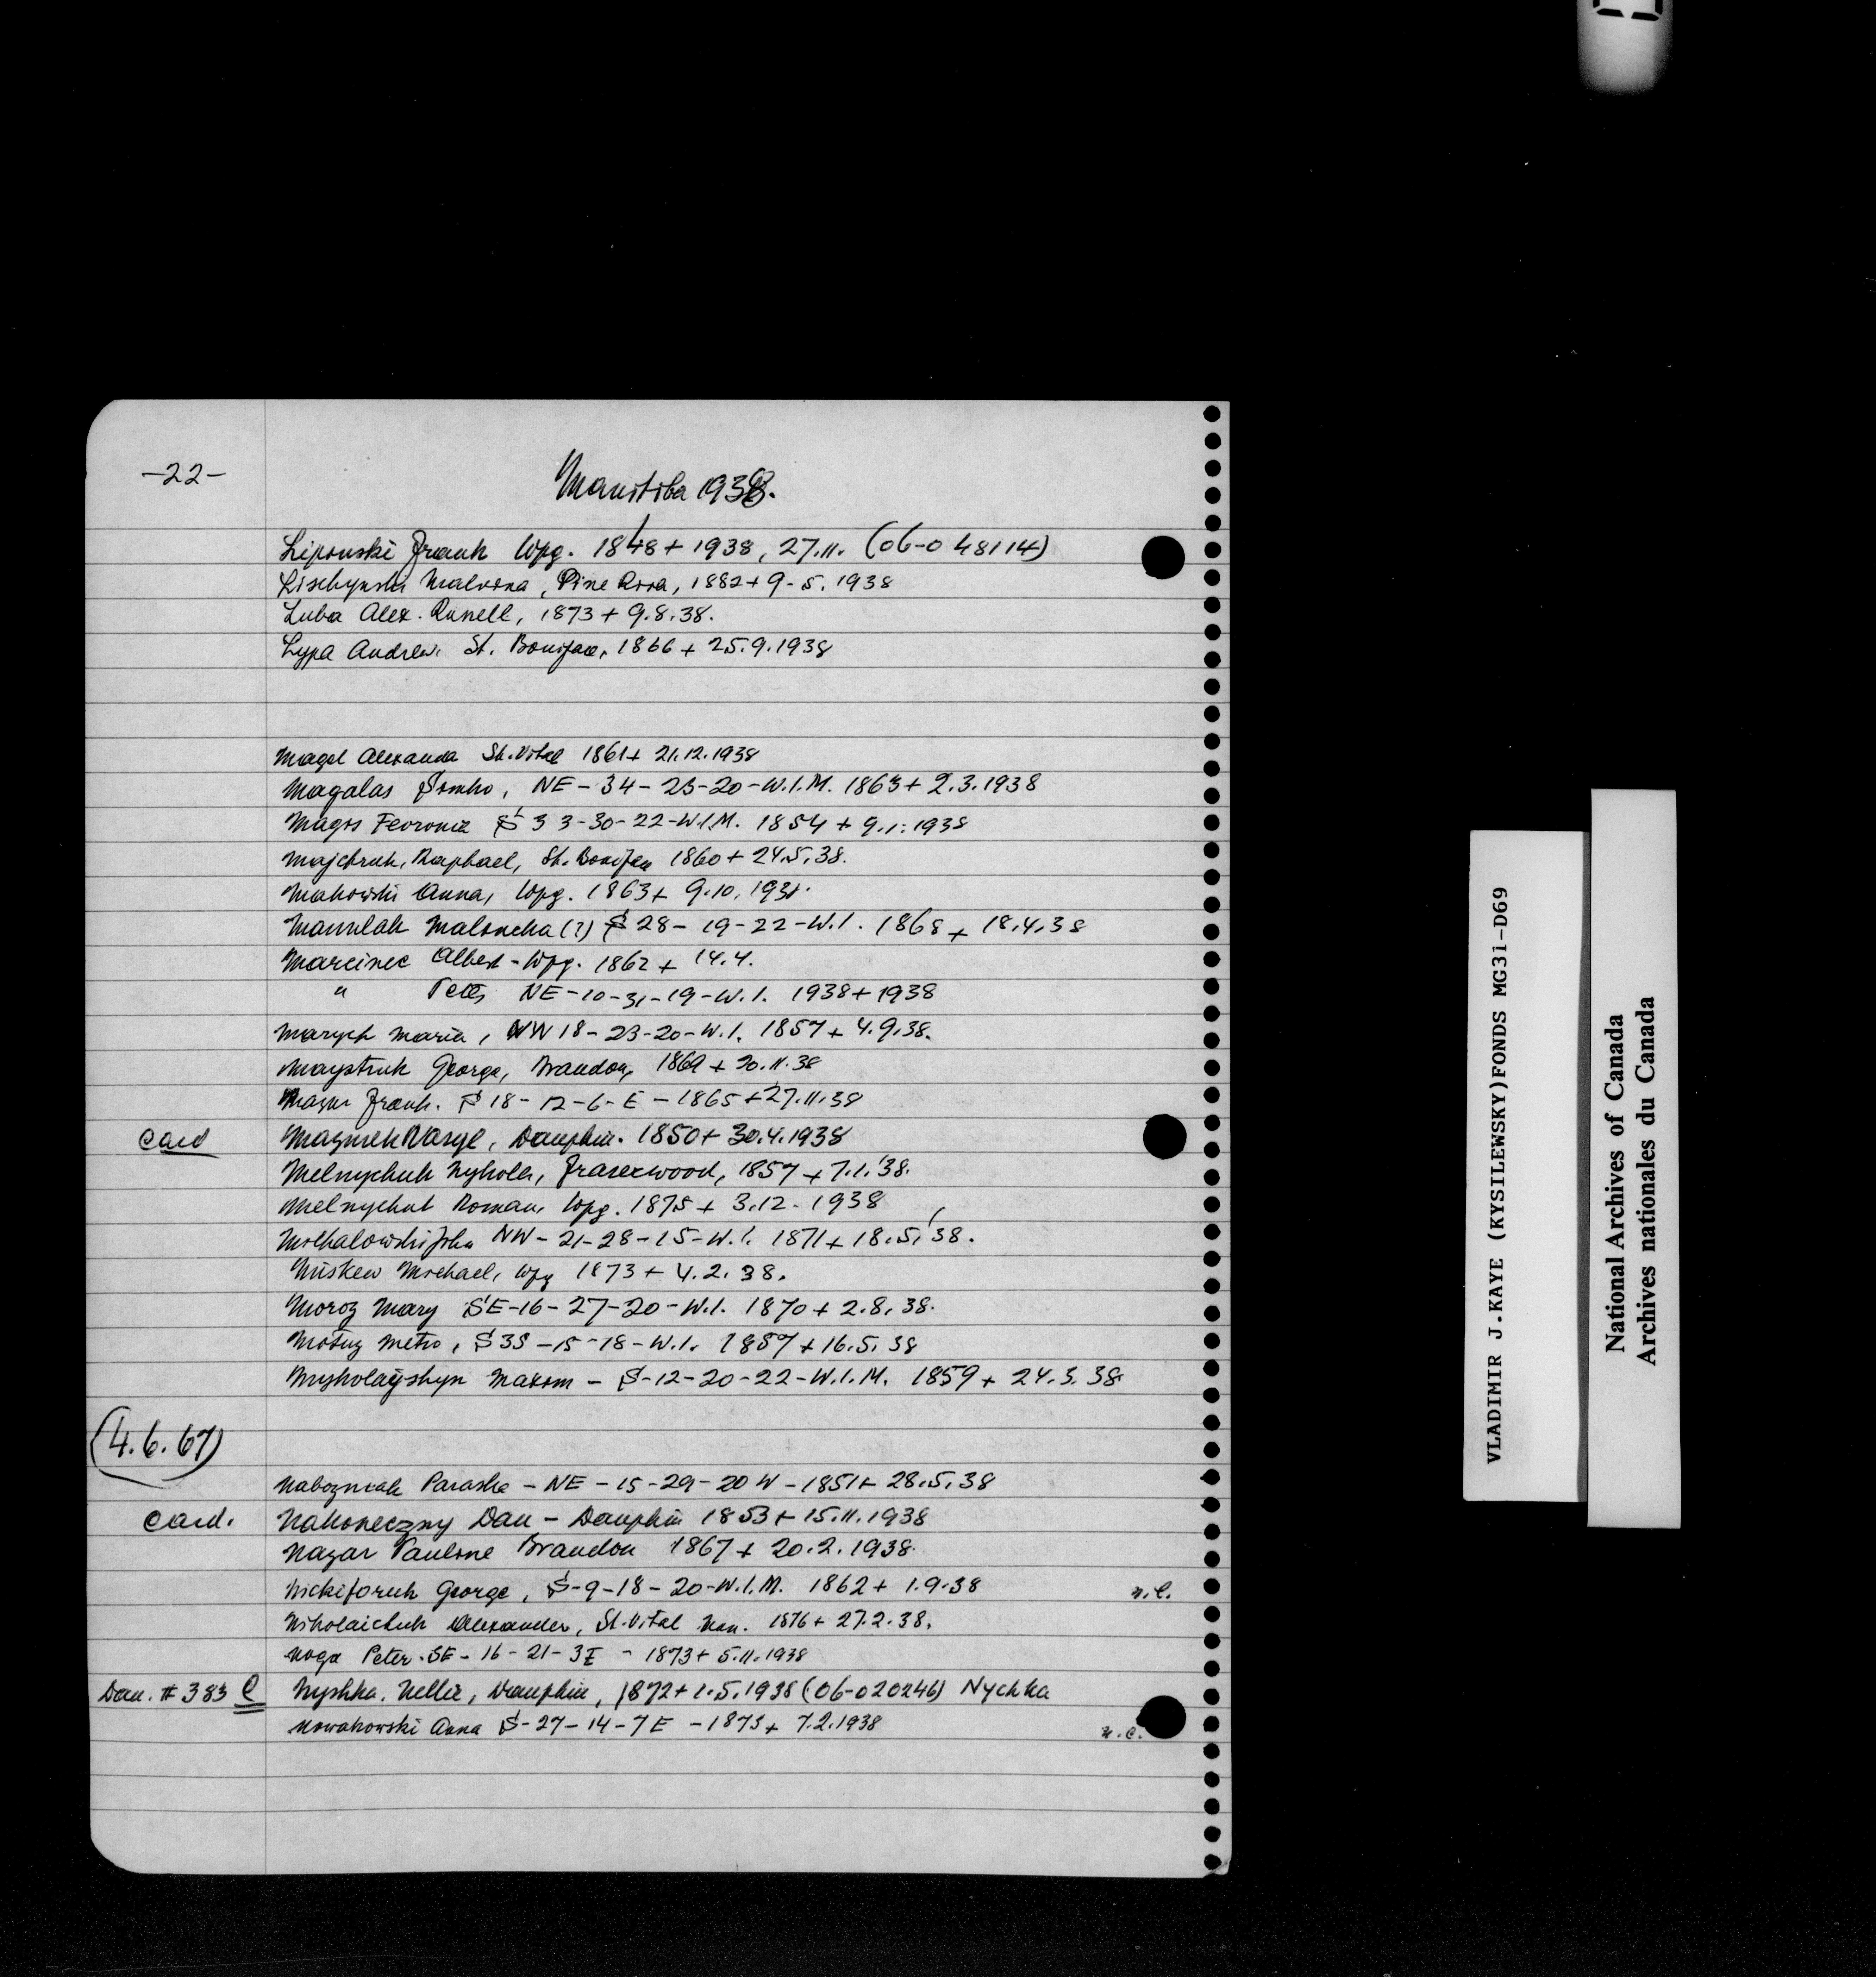 -22-
Manitoba 1938.
Liponski Frank Wpg. 1848 + 1938, 27.11. (06-048114)
Lischynski Malvina, Pine River, 1882 + 9-5. 1938
Luba Alex. Russell, 1873 + 9.8.38.
Lypa Andrew. St. Boniface, 1866 + 25.9.1938
Magel Alexanda St. Vital 1861 + 21.12.1938
Magalas NE-34-23-20-W.I.M. 1863 + 2.3.1938
Magos Fevronia S 33-30-22-W.I.M. 1854 + 9.1.1938
Majchruk, Raphael, St. Boniface 1860 + 24.5.38.
Makowski Anna, Wpg. 1863 + 9.10.
Manulak Maloncha (?) S 28-19-22-W.I. 1868 + 18.4.38
Marcinec Albert - Wpg. 1862 + 14.4.
" Peter NE-10-31-19-W.I. 1938 + 1938
Marych Maria, NW 18-23-20-W.I. 1857 + 4.9.38.
Maystruk George, Brandon, 1869 + 20.11.38
Mazur Frank. S 18-12-6-E - 1865 + 27.11.38
card Mazurek Wasyl, Dauphin. 1850 + 30.4.1938
Melnychuk Nykola, Fraserwood, 1857 + 7.1.'38.
Melnychuk Roman, Wpg. 1875 + 3.12.1938
Michalowski John NW-21-28-15-W.I. 1871 + 18.5.'38.
Miskew Michael, Wpg 1873 + 4.2.38.
Moroz Mary SE-16-27-20-W.I. 1870 + 2.8.38.
Motuz Metro, S 33-15-18-W.I. 1857 + 16.5.38
Mykolayshyn Maxim - S-12-20-22-W.I.M. 1859 + 24.3.38
(4.6.67)
Nabozniak Paraska - NE-15-29-20 W - 1851 + 28.5.38
card. Nakoneczny Dan - Dauphin 1853 + 15.11.1938
Nazar Pauline Brandon 1867 + 20.2.1938
Nickiforuk George, S-9-18-20-W.I.M. 1862 + 1.9.38 n.c.
Nikolaichuk Alexander, St. Vital Man. 1876 + 27.2.38.
Noga Peter. SE-16-21-3E - 1873 + 5.11.1938
Dau. # 383 C Nyshka. Nellie, Dauphin, 1872 + 1.5.1938 (06-020246) Nychka
Nowakowski Anna S-27-14-7E - 1873 + 7.2.1938 n.c.
VLADIMIR J.KAYE (KYSILEWSKY)FONDS MG31-D69
National Archives of Canada
Archives nationales du Canada